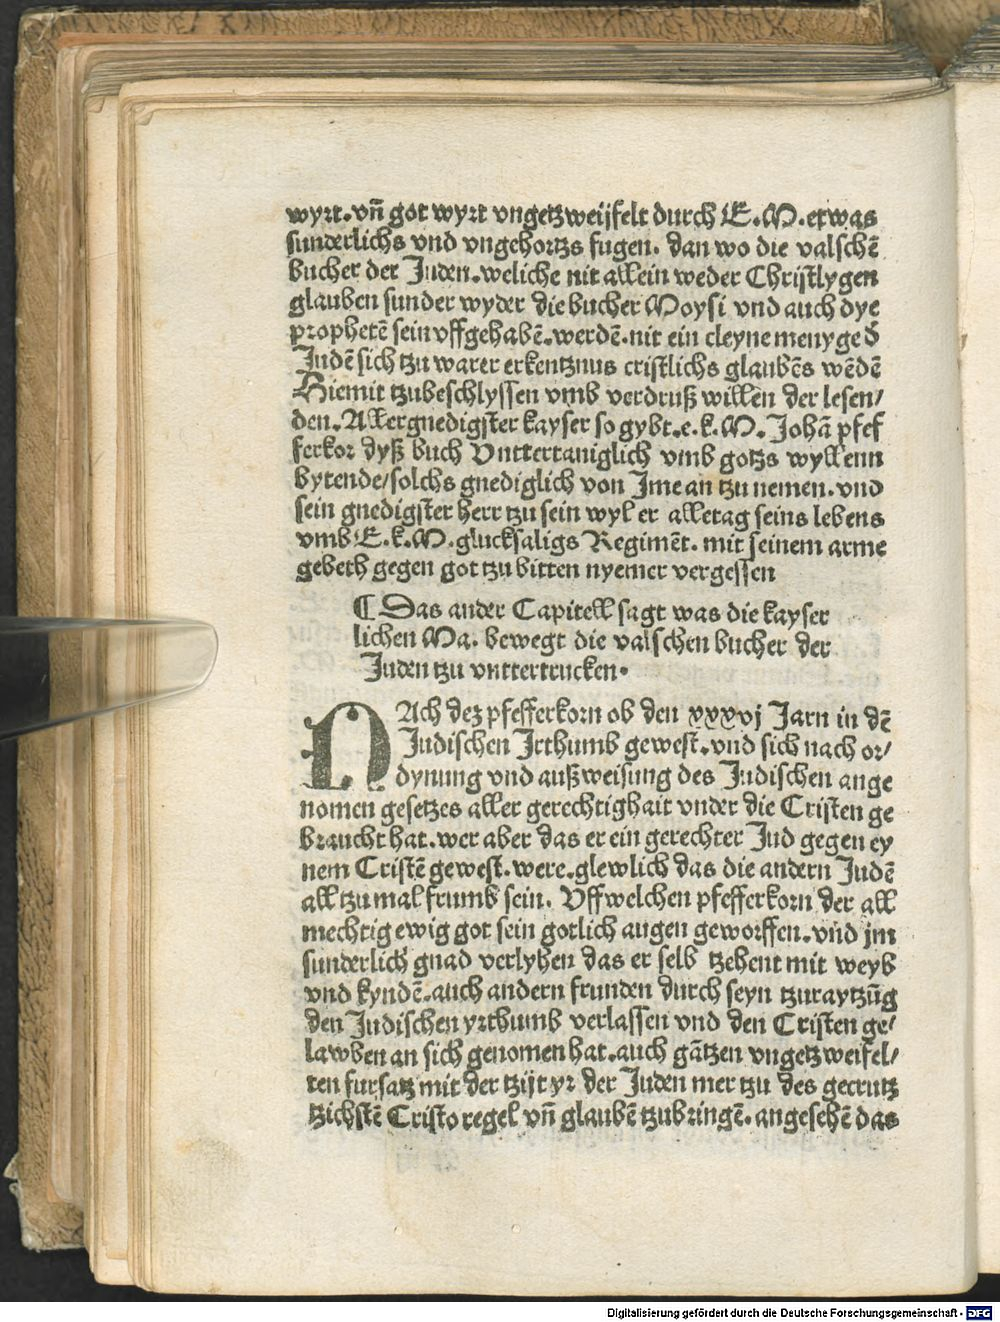 wyrt. vñ got wyrt vngetzweijfelt durch E. M. etwas
sunderlichs vnd vngehortzs fugen. dan wo die valschē
bucher der Juden. weliche nit allein weder Christlygen
glauben sunder wyder die bucher Moysi vnd auch dye
prophetē sein vffgehabē. werdē. nit ein cleyne menyge ď
Judē sich tzu warer erkentznus cristlichs glaubēs wēdē
Hiemit tzubeschlyssen vmb verdruß willen der lesen/
den. Allergnedigster kayser so gybt. e. k. M. Johā pfef
ferkor dyß buch Vnttertaniglich vmb gotzs wyllenn
bytende/solchs gnediglich von Jme an tzu nemen. vnd
sein gnedigster herr tzu sein wyl er alletag seins lebens
vmb E. k. M. glucksaligs Regimēt. mit seinem arme
gebeth gegen got tzu bitten nyemer vergessen
¶ Das ander Capitell sagt was die kayser
lichen Ma. bewegt die valschen bucher der
Juden tzu vnttertrucken.
NAch dez pfefferkorn ob den xxxvj Jarn in dē
Judischen Jrthumb gewest. vnd sich nach or/
dynung vnd außweisung des Judischen ange
nomen gesetzes aller gerechtighait vnder die Cristen ge
braucht hat. wer aber das er ein gerechter Jud gegen ey
nem Cristē gewest. were. glewlich das die andern Judē
all tzu mal frumb sein. Vff welchen pfefferkorn der all
mechtig ewig got sein gotlich augen geworffen. vnd jm
sunderlich gnad verlyhen das er selb tzehent mit weyb
vnd kyndē. auch andern frunden durch seyn tzuraytzūg
den Judischen yrthumb verlassen vnd den Cristen ge/
lawben an sich genomen hat. auch gātzen vngetzweifel/
ten fursatz mit der tzijt yr der Juden mer tzu des gecrutz
tzichstē Cristo regel vñ glaubē tzubringē. angesehē das
Digitalisierung gefördert durch die Deutsche Forschungsgemeinschaft - DFG